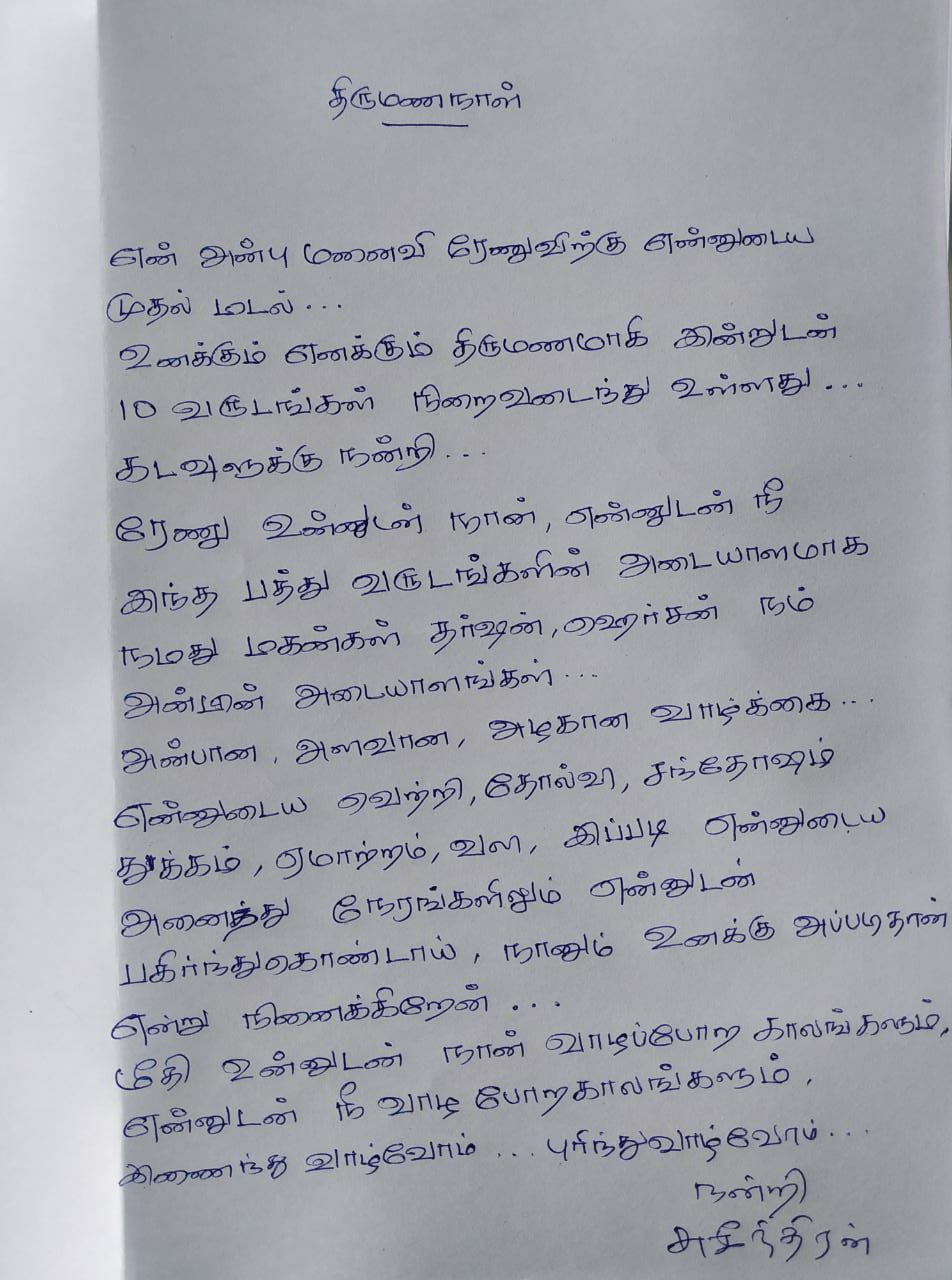 திருமணநாள்
என் அன்பு மனைவி ரேணுவிற்கு என்னுடைய
முதல் மடல்...
உனக்கும் எனக்கும் திருமணமாகி இன்றுடன்
10 வருடங்கள் நிறைவடைந்து உள்ளது...
கடவுளுக்கு நன்றி...
ரேணு உன்னுடன் நான், என்னுடன் நீ
இந்த பத்து வருடங்களின் அடையாளமாக
நமது மகன்கள் தர்ஷன், ஹெர்சன் நம்
அன்பின் அடையாளங்கள்...
அன்பான, அளவான, அழகான வாழ்க்கை...
என்னுடைய வெற்றி, தோல்வி, சந்தோஷம்
துக்கம், ஏமாற்றம், வலி, இப்படி என்னுடைய
அனைத்து நேரங்களிலும் என்னுடன்
பகிர்ந்துகொண்டாய், நானும் உனக்கு அப்படிதான்
என்று நினைக்கிறேன்...
மீதி உன்னுடன் நான் வாழப்போற காலங்களும்,
என்னுடன் நீ வாழ போறகாலங்களும்,
இணைந்து வாழ்வோம்... புரிந்துவாழ்வோம்...
நன்றி